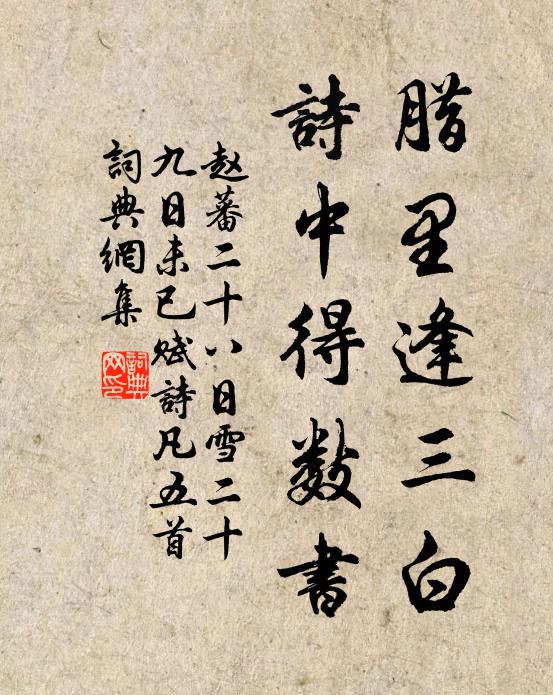 腊里逢三白
詩中得数書
赵蕃二十八日雪二十
九日未已赋詩凡五首
詞典網集
詞典
网印